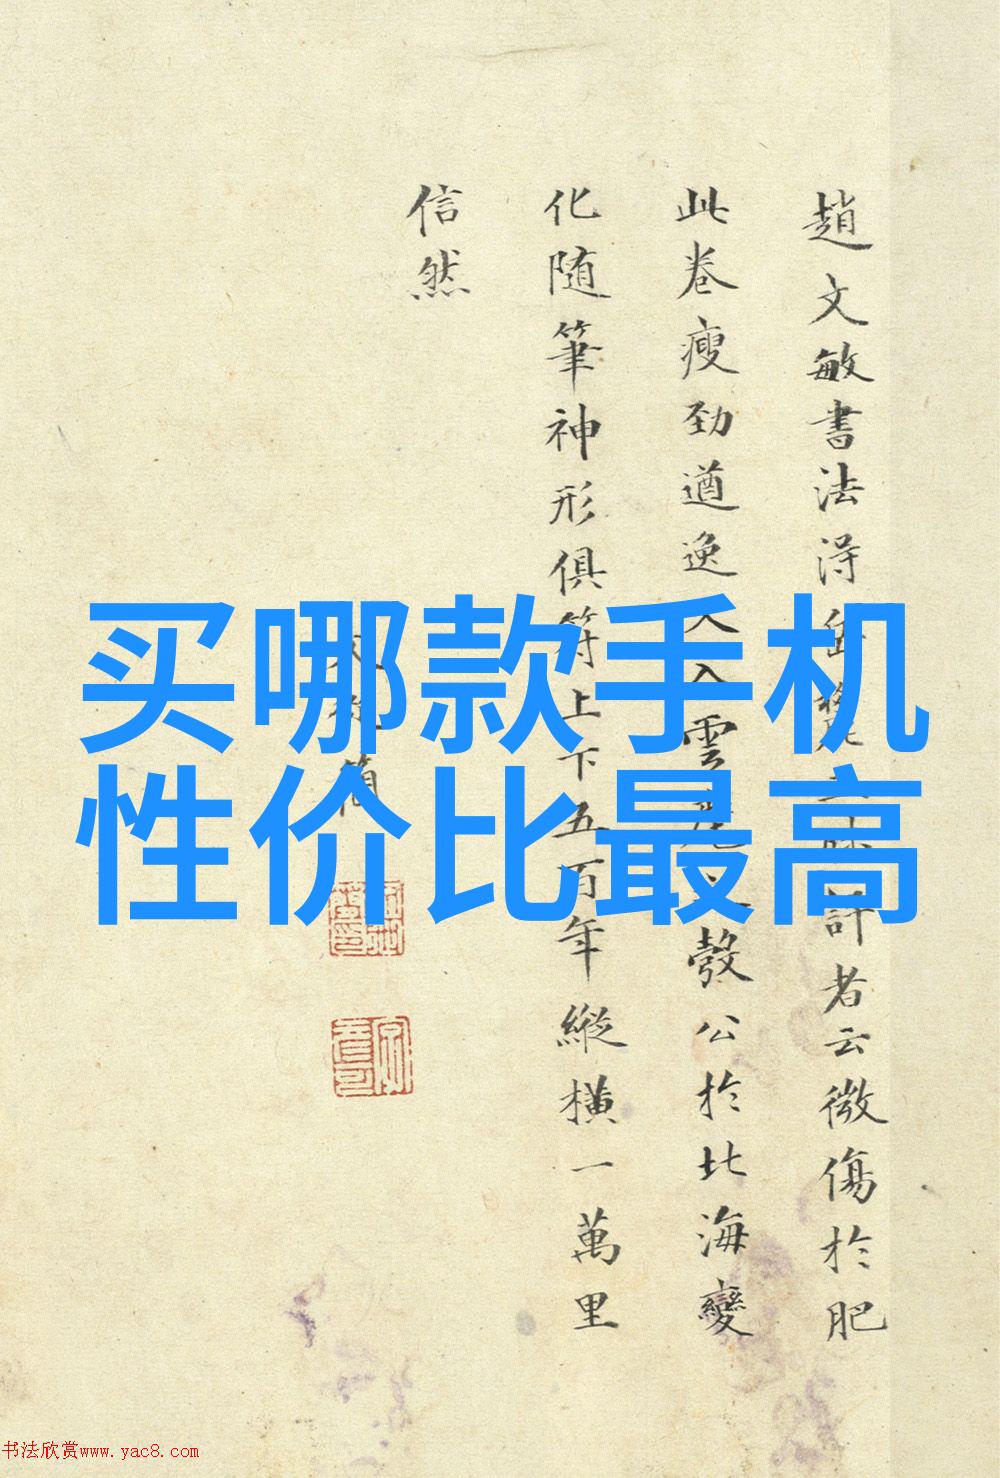 趙文敏書法淂
許者云微傷於肥
此卷瘦劲遒逸
雲
公於北海變
化随筆神形俱符上下五百年縱橫一萬里
信然
买哪款手机
性价比最高
书法欣赏www.yac8.com